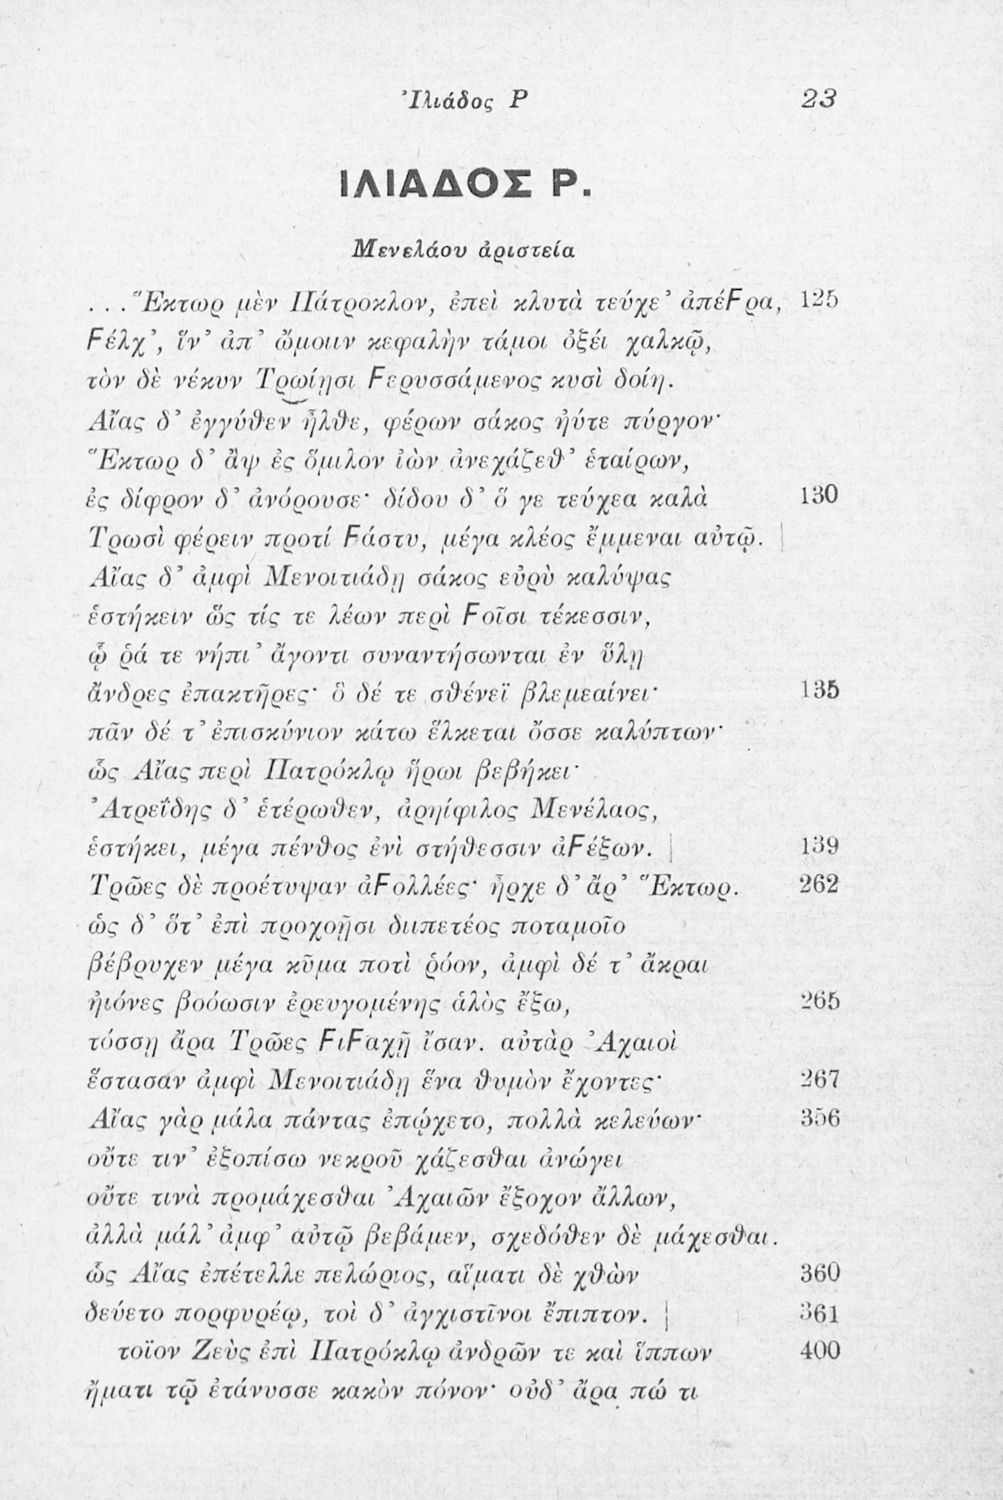 Ἰλιάδος Ρ 23
ΙΛΙΑΔΟΣ Ρ.
Μενελάου ἀριστεία
...Ἕκτωρ μὲν Πάτροκλον, ἐπεὶ κλυτὰ τεύχε᾽ ἀπέϜρα, 125
Ϝέλχ᾽, ἵν᾽ ἀπ᾽ ὤμοιιν κεφαλὴν τάμοι ὀξέι χαλκῷ,
τὸν δὲ νέκυν Τρῳίῃσι Ϝερυσσάμενος κυσὶ δοίη.
Αἴας δ᾽ ἐγγύθεν ἦλθε, φέρων σάκος ἠύτε πύργον·
Ἕκτωρ δ᾽ ἂψ ἐς ὅμιλον ἰὼν ἀνεχάζεθ᾽ ἑταίρων,
ἐς δίφρον δ᾽ ἀνόρουσε· δίδου δ᾽ ὅ γε τεύχεα καλὰ 130
Τρωσὶ φέρειν προτί Ϝάστυ, μέγα κλέος ἔμμεναι αὐτῷ. |
Αἴας δ᾽ ἀμφὶ Μενοιτιάδῃ σάκος εὐρὺ καλύψας
ἑστήκειν ὥς τίς τε λέων περὶ Ϝοῖσι τέκεσσιν,
ᾧ ῥά τε νήπι᾽ ἄγοντι συναντήσωνται ἐν ὕλῃ
ἄνδρες ἐπακτῆρες· ὃ δέ τε σθένεϊ βλεμεαίνει·
135
πᾶν δέ τ᾽ ἐπισκύνιον κάτω ἕλκεται ὄσσε καλύπτων·
ὣς Αἴας περὶ Πατρόκλῳ ἥρωι βεβήκει·
Ἀτρεΐδης δ᾽ ἑτέρωθεν, ἀρηίφιλος Μενέλαος,
ἑστήκει, μέγα πένθος ἐνὶ στήθεσσιν ἀϜέξων. | 139
Τρῶες δὲ προέτυψαν ἀϜολλέες· ἦρχε δ᾽ ἄρ᾽ Ἕκτωρ. 262
ὡς δ᾽ ὅτ᾽ ἐπὶ προχοῇσι διιπετέος ποταμοῖο
βέβρυχεν μέγα κῦμα ποτὶ ῥόον, ἀμφὶ δέ τ᾽ ἄκραι
ἠιόνες βοόωσιν ἐρευγομένης ἁλὸς ἔξω, 265
τόσσῃ ἄρα Τρῶες ϜιϜαχῇ ἴσαν. αὐτὰρ Ἀχαιοὶ
ἕστασαν ἀμφὶ Μενοιτιάδῃ ἕνα θυμὸν ἔχοντες· 267
Αἴας γὰρ μάλα πάντας ἐπῴχετο, πολλὰ κελεύων· 356
οὔτε τιν᾽ ἐξοπίσω νεκροῦ χάζεσθαι ἀνώγει
οὔτε τινὰ προμάχεσθαι Ἀχαιῶν ἔξοχον ἄλλων,
ἀλλὰ μάλ᾽ ἀμφ᾽ αὐτῷ βεβάμεν, σχεδόθεν δὲ μάχεσθαι.
ὣς Αἴας ἐπέτελλε πελώριος, αἵματι δὲ χθὼν 360
δεύετο πορφυρέῳ, τοὶ δ᾽ ἀγχιστῖνοι ἔπιπτον. | 361
τοῖον Ζεὺς ἐπὶ Πατρόκλῳ ἀνδρῶν τε καὶ ἵππων 400
ἤματι τῷ ἐτάνυσσε κακὸν πόνον· οὐδ᾽ ἄρα πώ τι